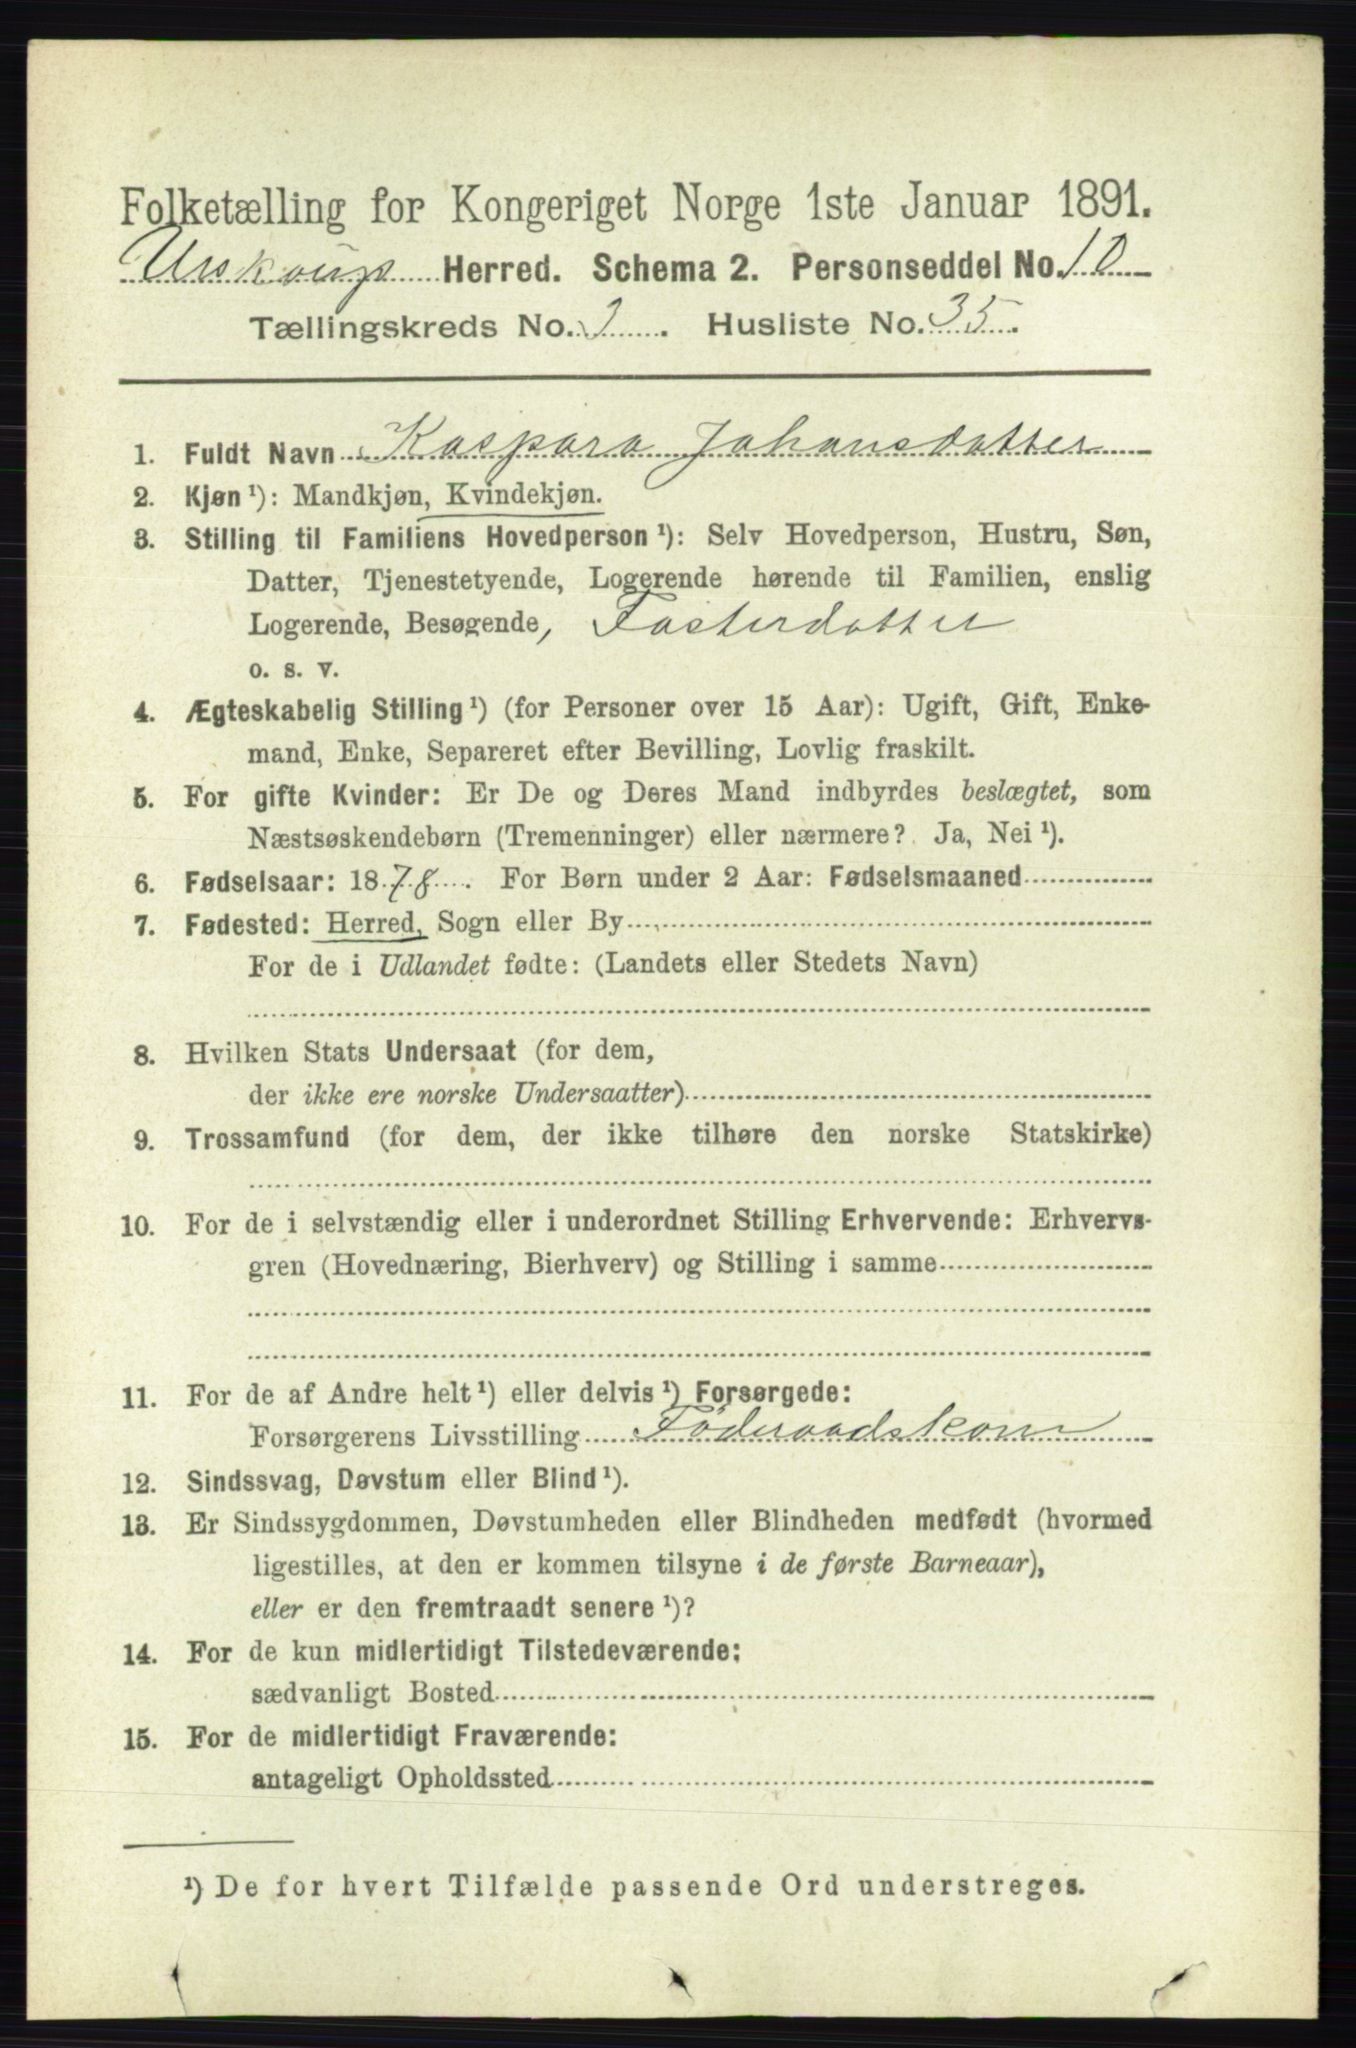 Folketælling for Kongeriget Norge 1ste Januar 1891.
Urskougs Herred. Schema 2. Personseddel No. 10
Tællingskreds No. 3. Husliste No. 35.
1. Fuldt Navn Kaspara Johansdatter
2. Kjøn ¹): Mandkjøn, Kvindekjøn.
3. Stilling til Familiens Hovedperson ¹): Selv Hovedperson, Hustru, Søn,
Datter, Tjenestetyende, Logerende hørende til Familien, enslig
Logerende, Besøgende, Fosterdatter
o. s. v.
4. Ægteskabelig Stilling ¹) (for Personer over 15 Aar): Ugift, Gift, Enke-
mand, Enke, Separeret efter Bevilling, Lovlig fraskilt.
5. For gifte Kvinder: Er De og Deres Mand indbyrdes beslægtet, som
Næstsøskendebørn (Tremenninger) eller nærmere? Ja, Nei ¹).
6. Fødselsaar: 1878. For Børn under 2 Aar: Fødselsmaaned
7. Fødested: Herred, Sogn eller By
For de i Udlandet fødte: (Landets eller Stedets Navn)
8. Hvilken Stats Undersaat (for dem,
der ikke ere norske Undersaatter)
9. Trossamfund (for dem, der ikke tilhøre den norske Statskirke)
10. For de i selvstændig eller i underordnet Stilling Erhvervende: Erhvervs-
gren (Hovednæring, Bierhverv) og Stilling i samme
11. For de af Andre helt ¹) eller delvis ¹) Forsørgede:
Forsørgerens Livsstilling Føderaadskone
12. Sindssvag, Døvstum eller Blind ¹).
13. Er Sindssygdommen, Døvstumheden eller Blindheden medfødt (hvormed
ligestilles, at den er kommen tilsyne i de første Barneaar),
eller er den fremtraadt senere ¹)?
14. For de kun midlertidigt Tilstedeværende:
sædvanligt Bosted
15. For de midlertidigt Fraværende:
antageligt Opholdssted
¹) De for hvert Tilfælde passende Ord understreges.